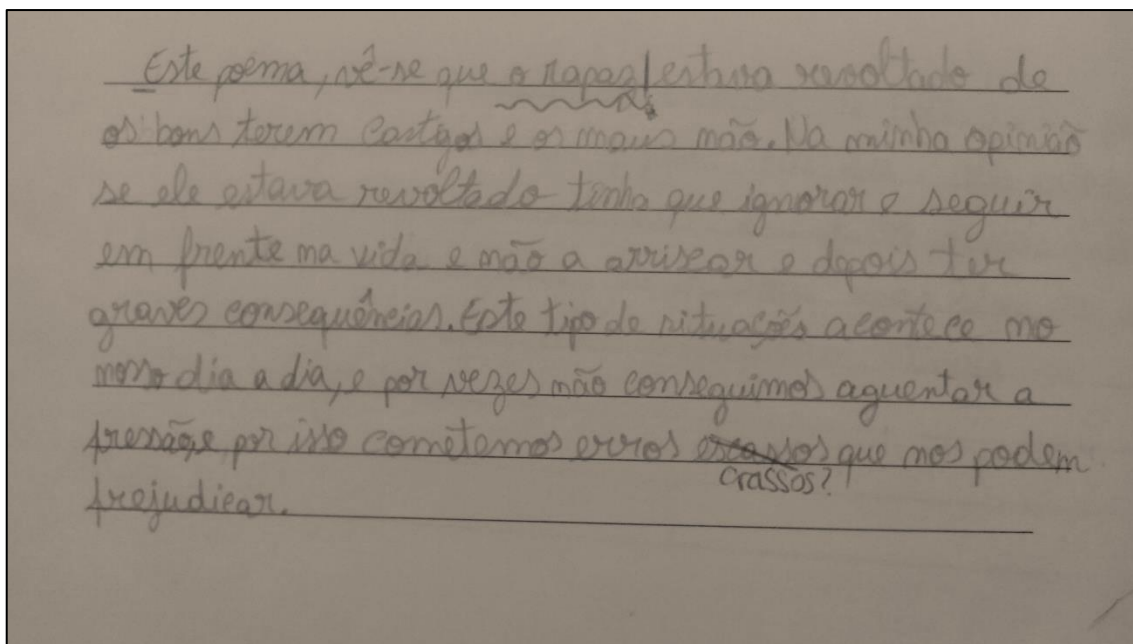 Este poema, vê-se que o rapaz estava revoltado de
os bons terem castigos e os maus não. Na minha opinião
se ele estava revoltado tinha que ignorar e seguir
em frente na vida e não a arriscar e depois ter
graves consequências. Este tipo de situações acontece no
nosso dia a dia, e por vezes não conseguimos aguentar a
pressão, e por isso cometemos erros escassos que nos podem
crassos?
prejudicar.